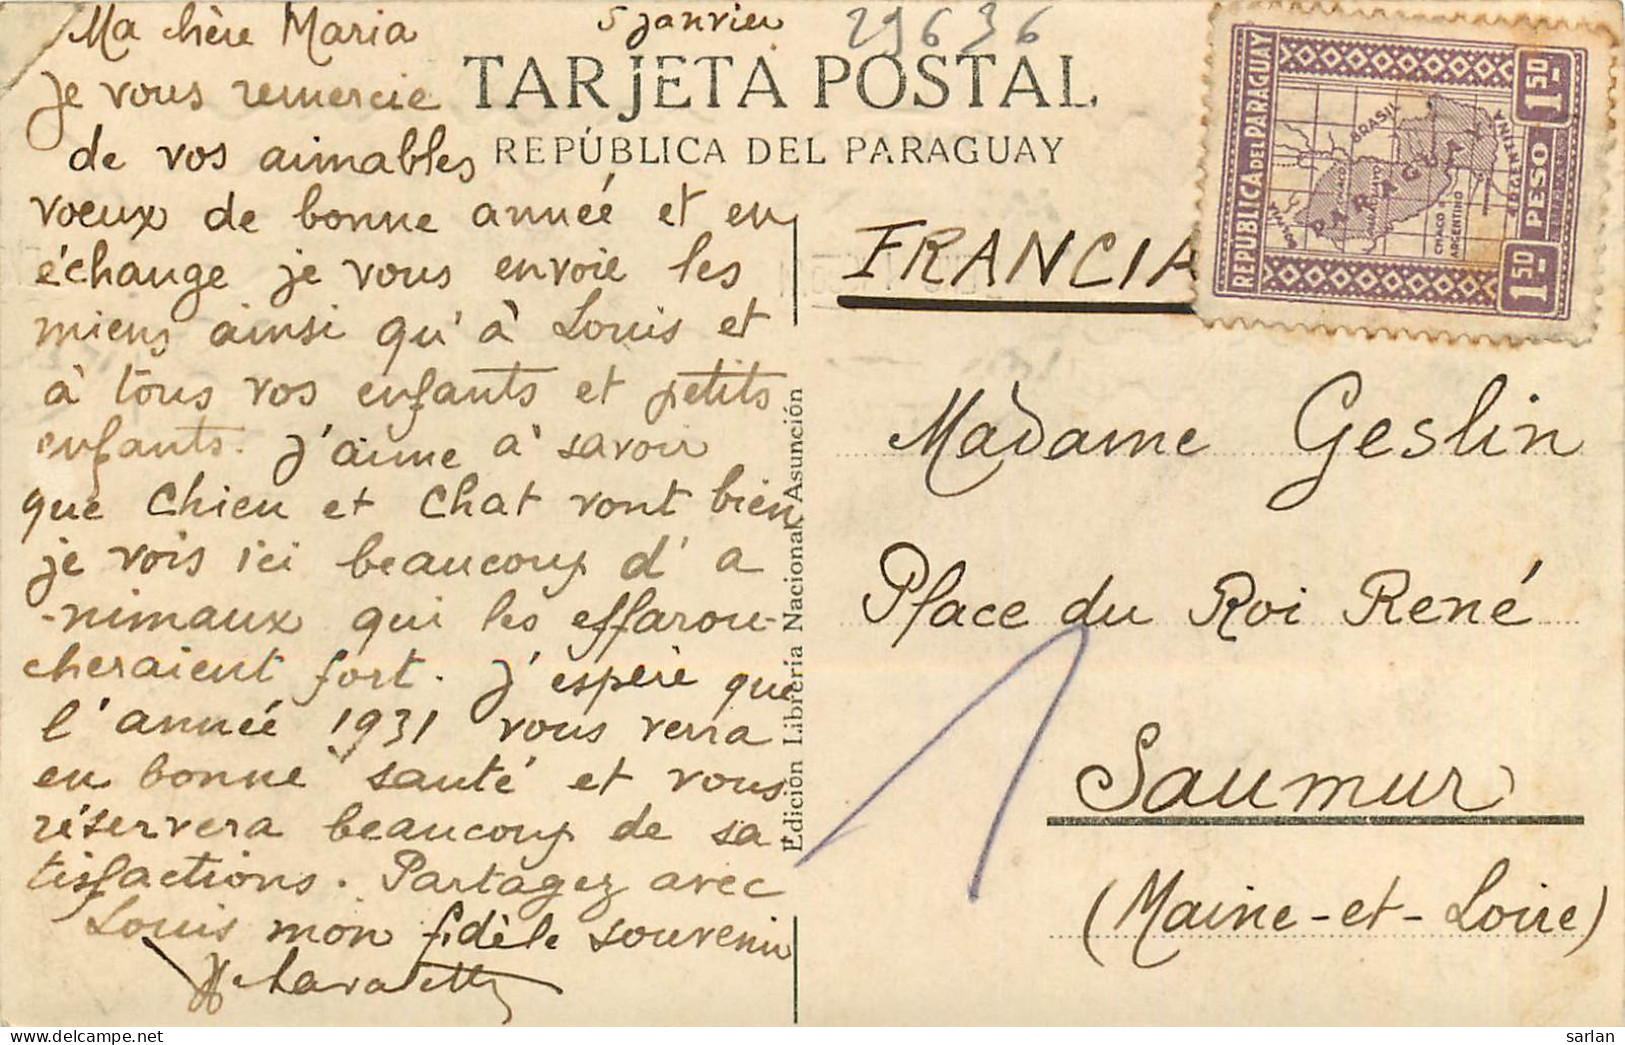 Ma chère Maria
5 janvier
29636
je vous remercie
de vos aimables
voeux de bonne année et en
échange je vous envoie les
miens ainsi qu'à Louis et
à tous vos enfants et petits
enfants. J'aime à savoir
que Chien et Chat vont bien
je vois ici beaucoup d'a
-nimaux qui les effarou-
cheraient fort. J'espère que
l'année 1931 vous verra
en bonne santé et vous
réservera beaucoup de sa
tisfactions. Partagez avec
Louis mon fidèle souvenir
TARJETA POSTAL
REPÚBLICA DEL PARAGUAY
Edición Librería Nacional, Asunción
REPUBLICA DEL PARAGUAY
BRASIL
PARAGUAY
ARGENTINA
CHACO
ARGENTINO
1 50
PESO
1 50
FRANCIA
Madame Geslin
Place du Roi René
Saumur
(Maine-et-Loire)
1
sarlan | www.delcampe.net